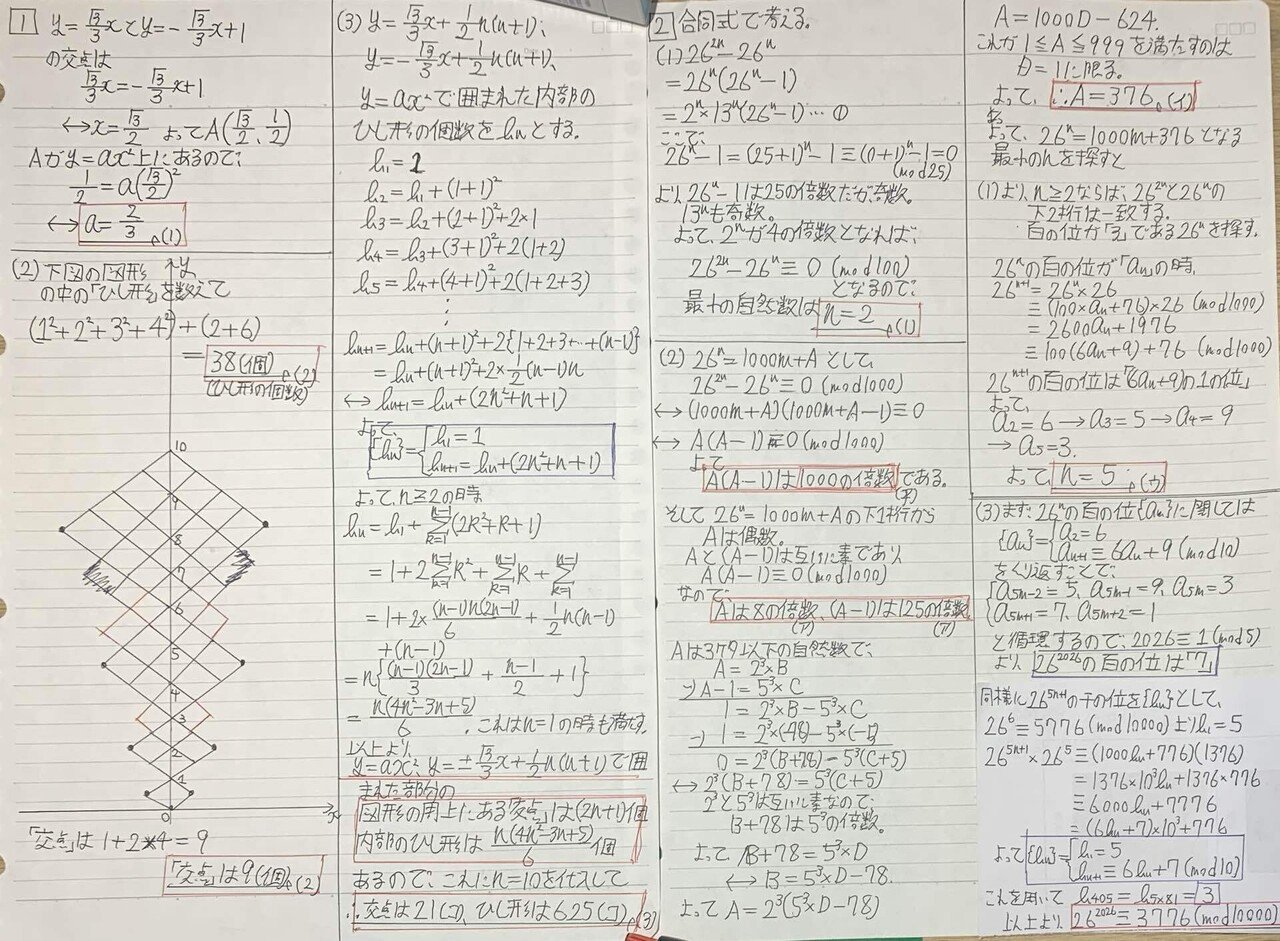 1 y=√3/3 x と y=-√3/3 x+1
の交点は
√3/3 x=-√3/3 x+1
↔x=√3/2 よってA(√3/2, 1/2)
Aがy=ax²上にあるので、
1/2=a(√3/2)²
↔a=2/3 (1)
(2)下図の図形
の中の「ひし形」を数えて
(1²+2²+3²+4²)+(2+6)
=38(個) (2)
(ひし形の個数)
y
10
9
8
7
6
5
4
3
2
1
0
x
「交点」は1+2×4=9
「交点」は9(個) (2)
(3) y=√3/3 x+1/2 n(n+1)、
y=-√3/3 x+1/2 n(n+1)、
y=ax²で囲まれた内部の
ひし形の個数をhnとする。
h1=1
h2=h1+(1+1)²
h3=h2+(2+1)²+2×1
h4=h3+(3+1)²+2(1+2)
h5=h4+(4+1)²+2(1+2+3)
⋮
hn+1=hn+(n+1)²+2{1+2+3+…+(n-1)}
=hn+(n+1)²+2×1/2(n-1)n
↔hn+1=hn+(2n²+n+1)
よって、
{hn}={h1=1
hn+1=hn+(2n²+n+1)
よって、n≧2の時
hn=h1+Σ[k=1→n-1](2k²+k+1)
=1+2Σ[k=1→n-1]k²+Σ[k=1→n-1]k+Σ[k=1→n-1]
=1+2×(n-1)n(2n-1)/6+1/2 n(n-1)
+(n-1)
=n{(n-1)(2n-1)/3+(n-1)/2+1}
=n(4n²-3n+5)/6. これはn=1の時も満たす。
以上より、
y=ax²、y=±√3/3 x+1/2 n(n+1)で囲
まれた部分の
図形の周上にある「交点」は(2n+1)個
内部のひし形は n(4n²-3n+5)/6 個
あるので、これにn=10を代入して
∴交点は21(コ)、ひし形は625(コ) (3)
2 合同式で考える。
(1)26²ⁿ-26ⁿ
=26ⁿ(26ⁿ-1)
=2ⁿ×13ⁿ(26ⁿ-1)…①
ここで、
26ⁿ-1=(25+1)ⁿ-1≡(0+1)ⁿ-1=0
(mod25)
より、26ⁿ-1は25の倍数だが奇数。
13ⁿも奇数。
よって、2ⁿが4の倍数となれば、
26²ⁿ-26ⁿ≡0(mod100)
となるので、
最小の自然数は n=2 (1)
(2) 26ⁿ=1000m+Aとして、
26²ⁿ-26ⁿ≡0(mod1000)
↔(1000m+A)(1000m+A-1)≡0
↔A(A-1)≡0(mod1000)
よって
A(A-1)は1000の倍数である。
(ア)
そして 26ⁿ=1000m+Aの下1桁から
Aは偶数。
Aと(A-1)は互いに素であり、
A(A-1)≡0(mod1000)
なので、
Aは8の倍数、(A-1)は125の倍数
(ア) (ア)
Aは3ケタ以下の自然数で、
A=2³×B
-)A-1=5³×C
1=2³×B-5³×C
-) 1=2³×(-78)-5³×(-5)
0=2³(B+78)-5³(C+5)
↔2³(B+78)=5³(C+5)
2³と5³は互いに素なので、
B+78は5³の倍数。
よって B+78=5³×D
↔B=5³×D-78.
よって A=2³(5³×D-78)
A=1000D-624.
これが1≦A≦999を満たすのは
D=1に限る。
よって、∴A=376 (イ)
よって、26ⁿ=1000m+376となる
最小のnを探すと
(1)より、n≧2ならば、26²ⁿと26ⁿの
下2桁は一致する。
百の位が「3」である26ⁿを探す。
26ⁿの百の位が「an」の時、
26ⁿ⁺¹=26ⁿ×26
≡(100×an+76)×26 (mod1000)
=2600an+1976
≡100(6an+9)+76 (mod1000)
26ⁿ⁺¹の百の位は「(6an+9)の1の位」
よって、
a2=6→a3=5→a4=9
→a5=3.
よって、n=5 (ウ)
(3)まず26ⁿの百の位{an}に関しては
{an}={a2=6
an+1≡6an+9(mod10)
をくり返すことで、
{a5m-2=5、a5m-1=9、a5m=3
a5m+1=7、a5m+2=1
と循環するので、2026≡1(mod5)
より、26²⁰²⁶の百の位は「7」
同様に26⁵ⁿ⁺¹の千の位を{hn}として、
26⁶≡5776(mod10000)よりh1=5
26⁵ⁿ⁺¹×26⁵≡(1000hn+776)(1376)
=1376×10³hn+1376×776
≡6000hn+7776
=(6hn+7)×10³+776
よって{hn}={h1=5
hn+1≡6hn+7(mod10)
これを用いて h405=h5×81=3
以上より 26²⁰²⁶≡3776(mod10000)